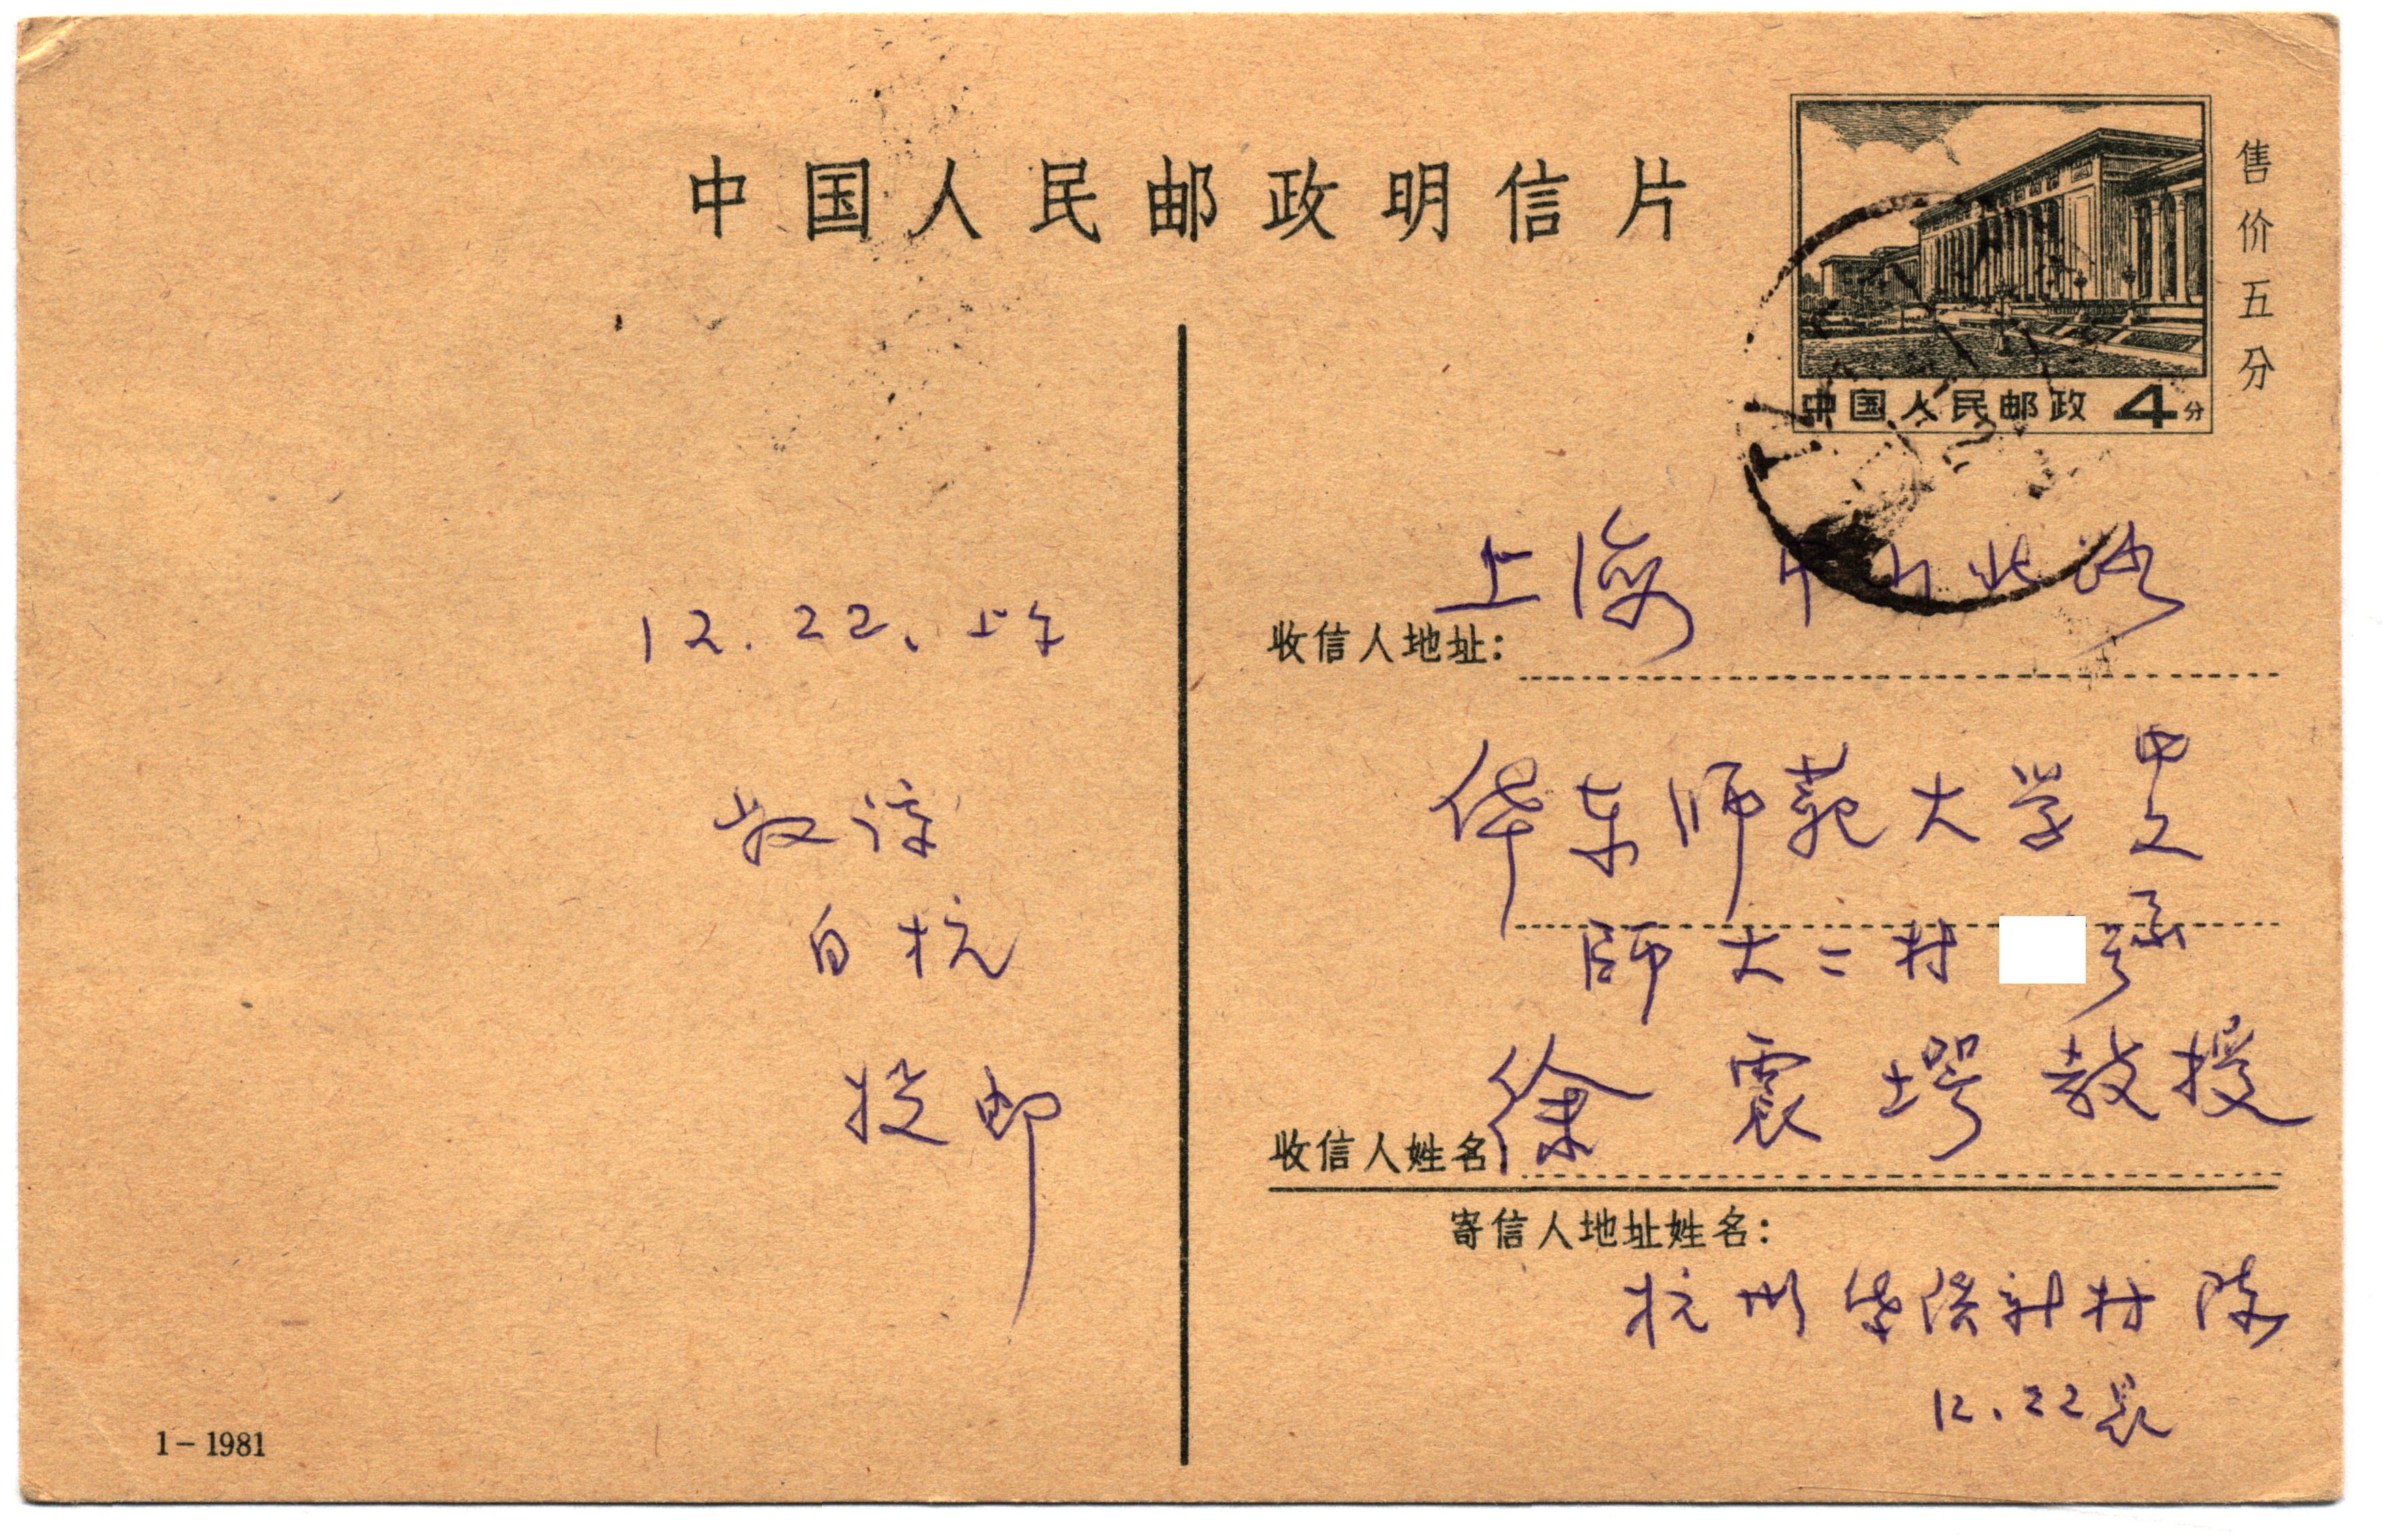 中国人民邮政明信片
售价五分
中国人民邮政 4分
12.22、上午
敬淳
自杭
投邮
收信人地址：上海 中山北路
华东师范大学 中文系
师大二村 号
收信人姓名：徐震堮教授
寄信人地址姓名：
杭州 新村 陈
12.22晨
1-1981